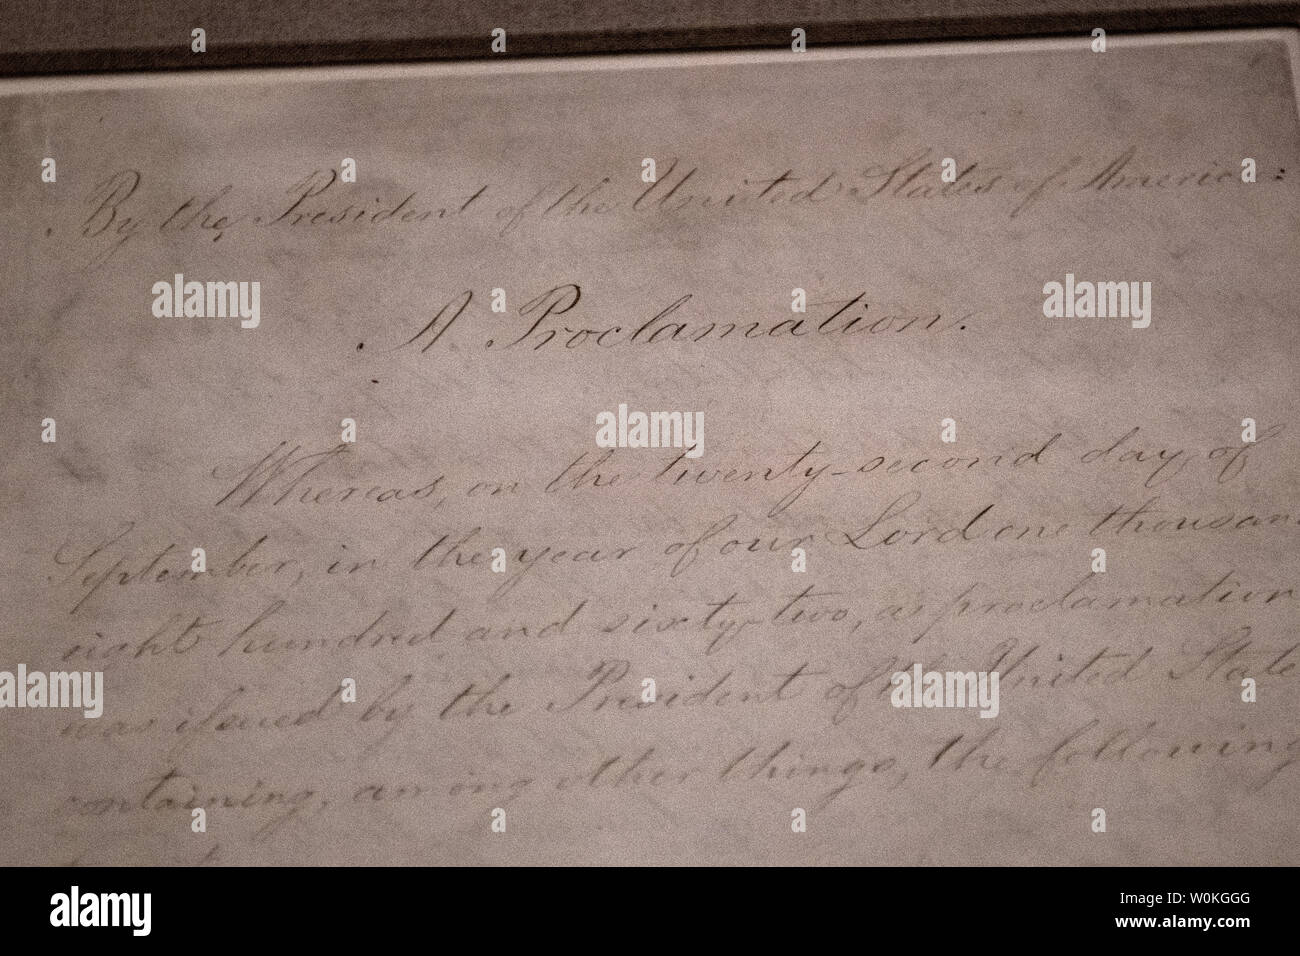 By the President of the United States of America:
A Proclamation.
Whereas, on the twenty-second day of
September, in the year of our Lord one thousan
eight hundred and sixty-two, a proclamation
was issued by the President of the United State
containing, among other things, the following
alamy
alamy
alamy
alamy
alamy
a
alamy
Image ID: W0KGGG
www.alamy.com